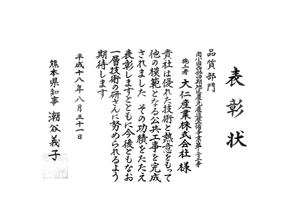 表彰状
品質部門
施工者 大仁産業株式会社 様
貴社は優れた技術と熱意をもって
他の模範となる公共工事を完成
されました その功績をたたえ
表彰しますとともに今後ともなお
一層技術の研さんに努められるよう
期待します
平成十八年八月三十一日
熊本県知事 潮谷義子